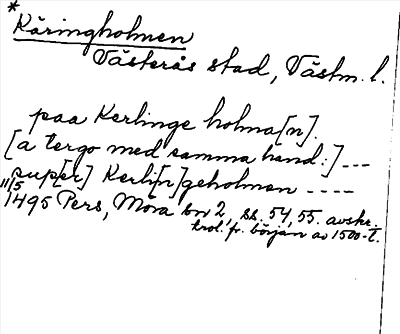 *
Käringholmen
Västerås stad, Västm. l.
paa Kerlinge holma[n].
[a tergo med samma hand:] ---
sup[er] Kerli[n]geholmen ----
11/5
1495 Pers, Möra br 2, ss. 54, 55. avskr.
trol. fr. början av 1500-t.